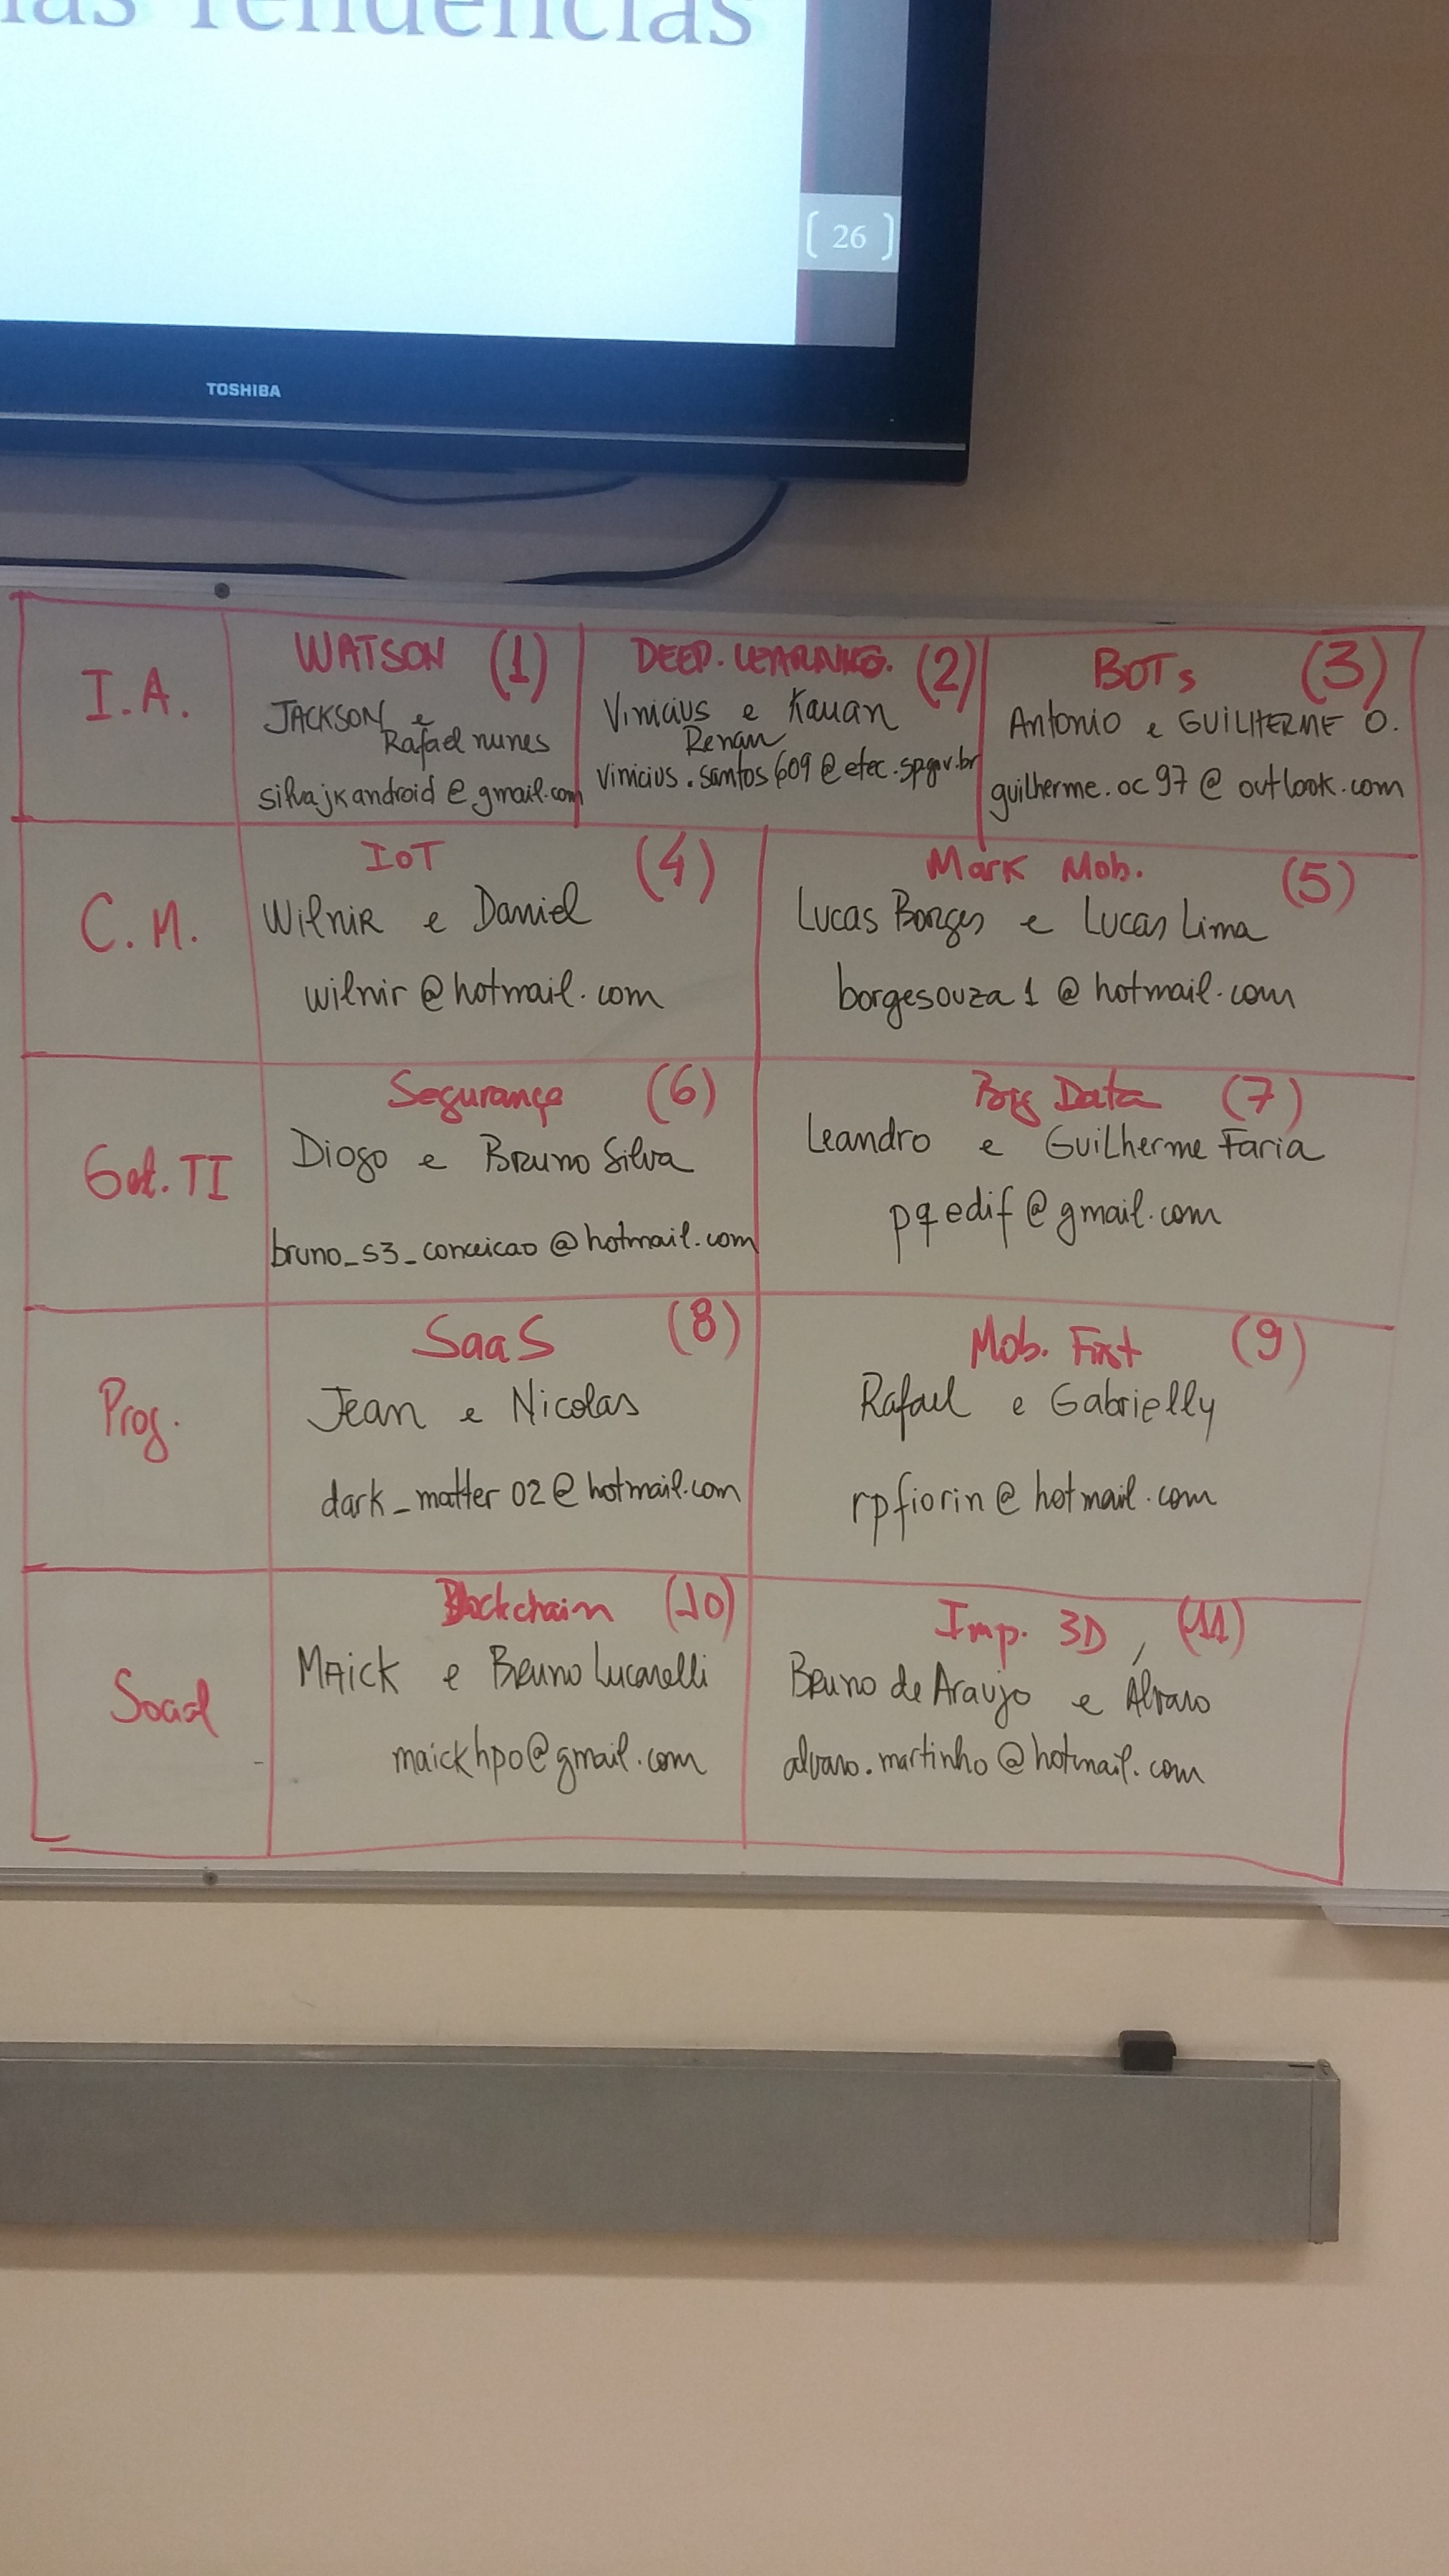 Tendências
[ 26 ]
TOSHIBA
I.A.
WATSON (1)
JACKSON e
Rafael nunes
silvajkandroid@gmail.com
DEEP. LEARNING. (2)
Vinicius e Kauan
Renan
vinicius.santos609@etec.sp.gov.br
BOTs (3)
Antonio e GUILHERME O.
guilherme.oc97@outlook.com
C.M.
IoT (4)
Wilnir e Daniel
wilnir@hotmail.com
Mark Mob. (5)
Lucas Borges e Lucas Lima
borgesouza1@hotmail.com
TI
Segurança (6)
Diogo e Bruno Silva
bruno_s3_conceicao@hotmail.com
Big Data (7)
Leandro e Guilherme Faria
pqedif@gmail.com
Prog.
SaaS (8)
Jean e Nicolas
dark_matter02@hotmail.com
Mob. First (9)
Rafael e Gabrielly
rpfiorin@hotmail.com
Social
Blockchain (10)
Maick e Bruno Lucarelli
maickhpo@gmail.com
Imp. 3D (11)
Bruno de Araujo e Álvaro
alvaro.martinho@hotmail.com